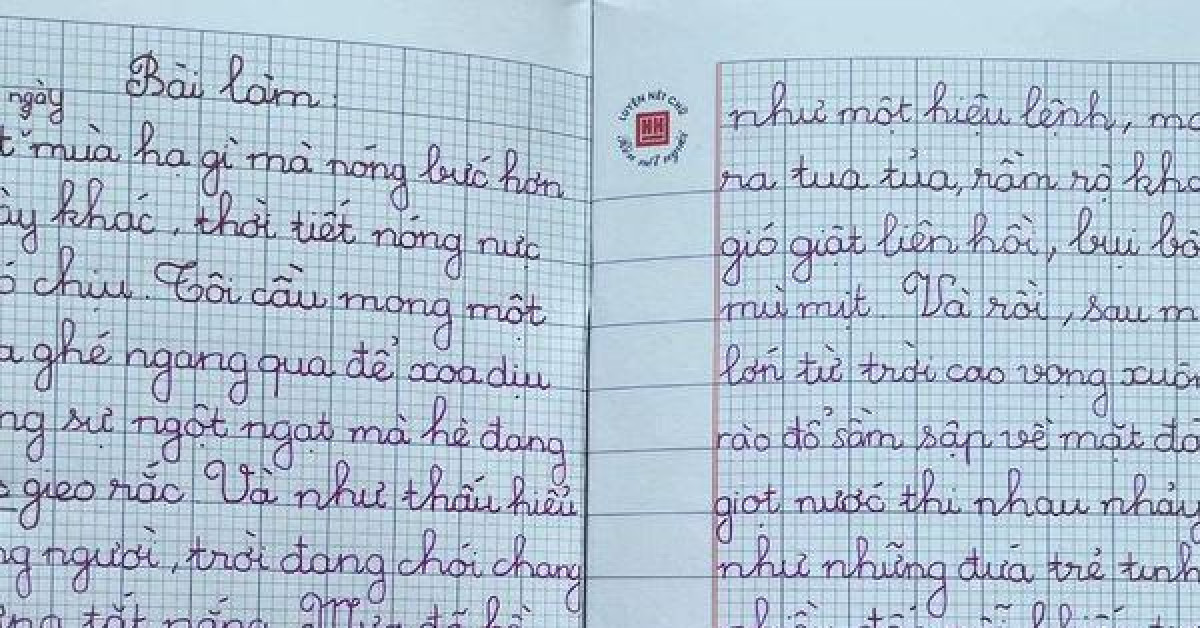 Bài làm:
ngày
mùa hạ gì mà nóng bức hơn
khác, thời tiết nóng nực
chịu. Tôi cầu mong một
ghé ngang qua để xoa dịu
sự ngột ngạt mà hè đang
gieo rắc. Và như thấu hiểu
người, trời đang chói chang
tắt nắng.
LUYỆN NÉT CHỮ
RÈN NẾT NGƯỜI
NH
như một hiệu lệnh,
ra tua tủa, rầm rộ
gió giật liên hồi, bụi
mù mịt. Và rồi, sau
lớn từ trời cao vọng
rào đổ sầm sập về mặt
giọt nước thi nhau nhảy
như những đứa trẻ